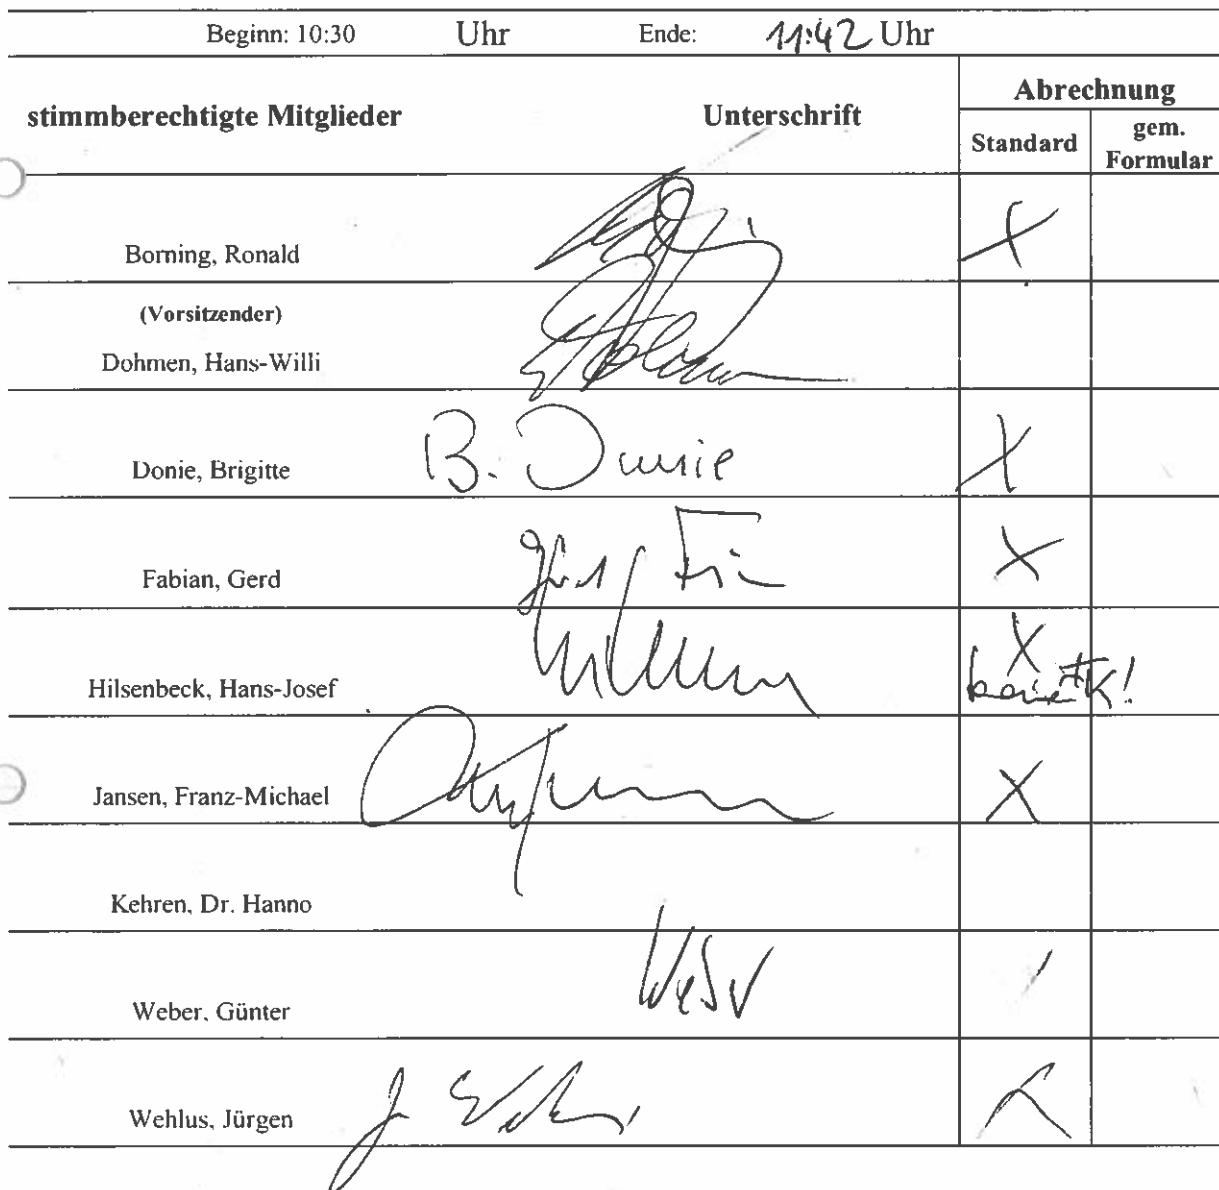 Beginn: 10:30 Uhr Ende: 11:42 Uhr
stimmberechtigte Mitglieder Unterschrift Abrechnung
Standard gem. Formular
Borning, Ronald X
(Vorsitzender)
Dohmen, Hans-Willi
Donie, Brigitte B. Donie X
Fabian, Gerd X
X
Hilsenbeck, Hans-Josef keine FK!
Jansen, Franz-Michael X
Kehren, Dr. Hanno
Weber, Günter
Wehlus, Jürgen X